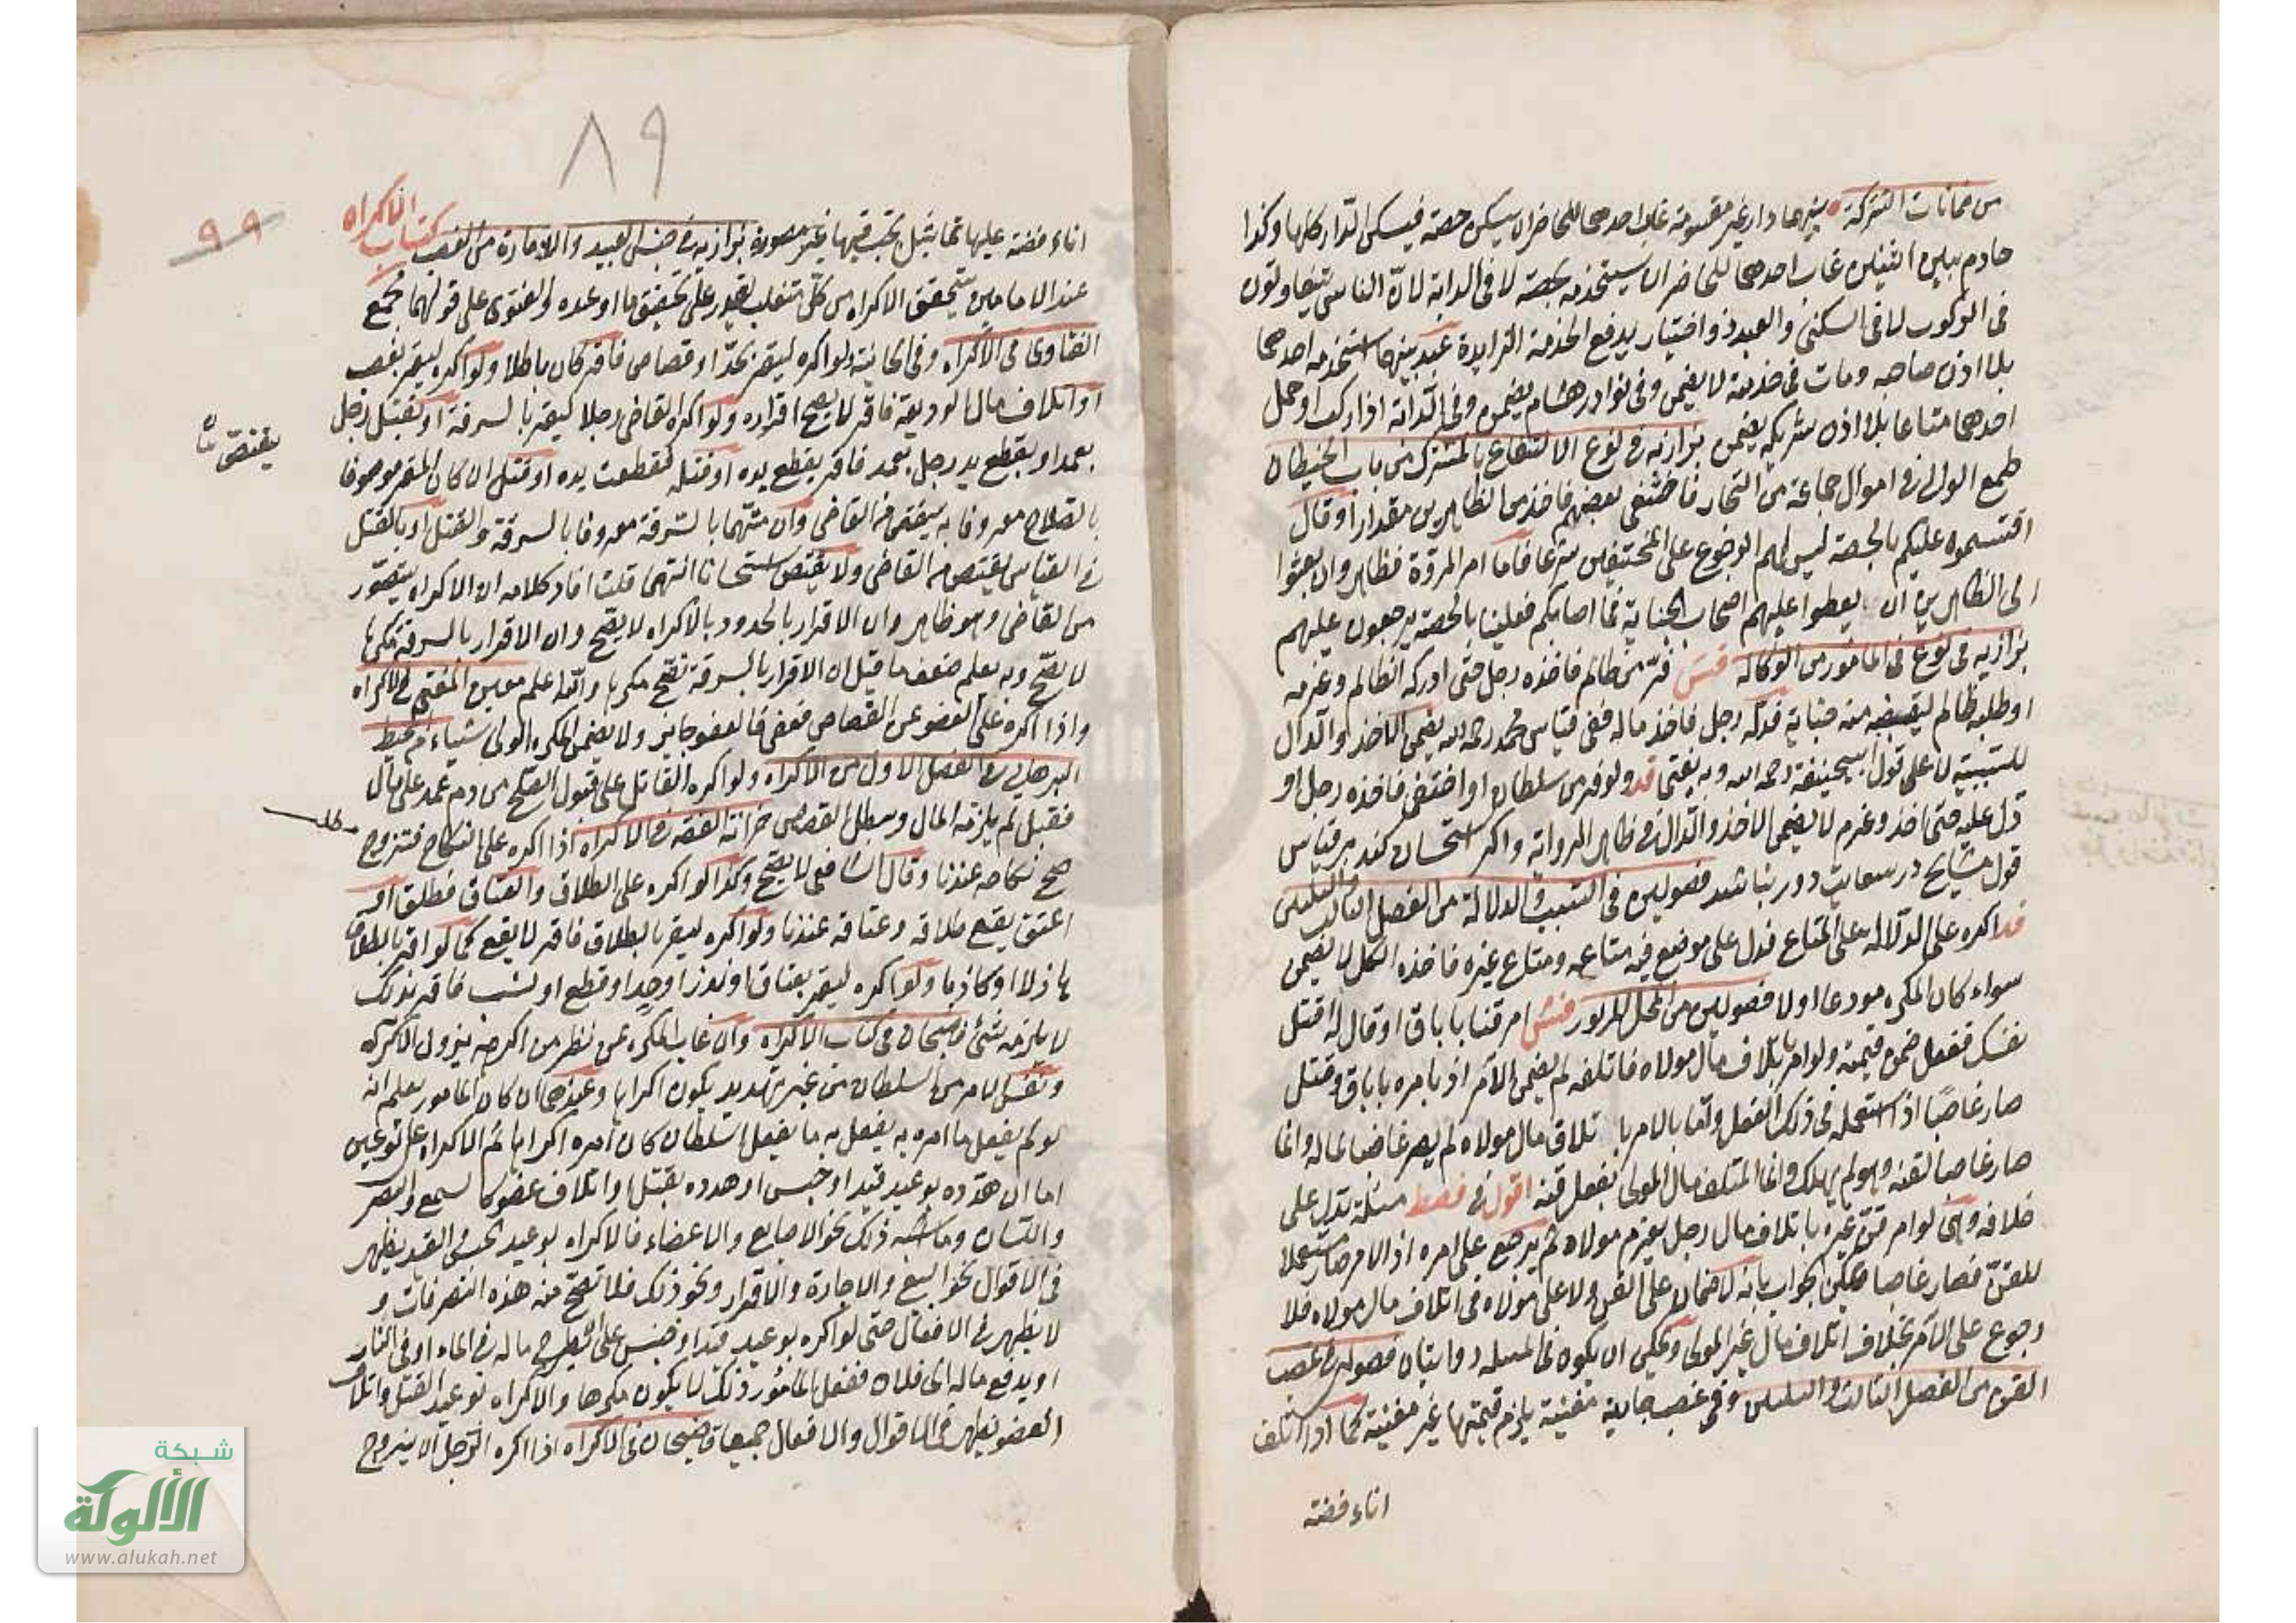 من ضمانات الشركة بينهما دار غير مقسومة غاب احدهما للحاضر ان يسكن حصته فيسكن الدار كلها وكذا
خادم بين اثنين غاب احدهما للحاضر ان يستخدمه بحصته لا في الدابة لان الناس يتفاوتون
في الركوب لا في السكنى والعبد ذو اختيار يدفع الخدمة الزايدة عبد بينهما استخدمه احدهما
بلا اذن صاحبه ومات في خدمته لا يضمن وفي نوادر هشام يضمن وفي الدابة اذا ركب او حمل
احدهما متاعا بلا اذن شريكه يضمن بزازيه في نوع الانتفاع بالمشترك من باب الحيطان
طمع الوالي في اموال جماعة من التجار فاختفى بعضهم فاخذ من الظاهرين مقدارا وقال
اقتسموه عليكم بالحصة ليس لهم الرجوع على المختفين شرعا فاما امر المروة فظاهر وان بعثوا
الى الظاهرين ان يعطوا عليهم اصحاب الجناية فما اصابكم فعلينا بالحصة يرجعون عليهم
بزازيه في نوع في المامور من الوكالة فش فر من ظالم فاخذه رجل حتى ادركه الظالم وغرمه
او طلبه ظالم ليقبضه منه جناية فدله رجل فاخذ ماله ففي قياس محمد رحمه الله يضمن الاخذ والدال
للتسبيبة لا على قول ابيحنيفة رحمه الله وبه يفتى قد ولو فر من سلطان او اختفى فاخذه رجل او
دل عليه حتى اخذ وغرم لا يضمن الاخذ والدال في ظاهر الرواية واكر استحسان كنند بر قياس
قول مشايخ در سعايت دور نباشد فصولين في التسبب والدلالة من الفصل الثالث والثلثين
قد اكره على الدلالة على المتاع فدل على موضع فيه متاعه ومتاع غيره فاخذه الكل لا يضمن
سواء كان المكره مودعا او لا فصولين من المحل المزبور فش امر قنا باباق او قال له اقتل
نفسك ففعل ضمن قيمته ولو امر باتلاف مال مولاه فاتلفه لم يضمن الآمر اذ بامره باباق وقتل
صار غاصبا اذ استعمله في ذلك الفعل واما بالامر باتلاف مال مولاه لم يصر غاصبا لماله وانما
صار غاصبا لقنه وهو لم يهلك وانما المتلف مال المولى بفعل قنه اقول في فصط مسئلة تدل على
خلافه وهي لو امر قن غيره باتلاف مال رجل يغرم مولاه ثم يرجع على امره اذ الامر صار مستعملا
للقن فصار غاصبا ويمكن الجواب بانه لا ضمان على القن ولا على مولاه في اتلاف مال مولاه فلا
رجوع على الآمر بخلاف اتلاف مال غير المولى ويمكن ان يكون في المسئله روايتان فصولين في غصب
القن من الفصل الثالث والثلثين وفي غصب جارية مغنية يلزم قيمتها غير مغنية كما اذا اتلف
اناء فضة
٨٩
٩٩
كتاب الاكراه
اناء فضة عليها تماثيل تجب قيمتها غير مصورة بزازيه في جنس العبيد والاماء من الغصب
عند الامامين يتحقق الاكراه من كل متغلب يقدر على تحقيق ما اوعده والفتوى على قولهما مجمع
الفتاوى في الاكراه وفي الخانية ولو اكره ليقر بحد او قصاص فاقر كان باطلا ولو اكره ليقر بغصب
او اتلاف مال او وديعة فاقر لا يصح اقراره ولو اكره القاضي رجلا ليقر بالسرقة او بقتل رجل
بعمد او بقطع يد رجل بعمد فاقر بقطع يده او قتله فقطعت يده او قتل ان كان المقر موصوفا
بالصلاح معروفا به يقتص من القاضي وان متهما بالسرقة معروفا بالسرقة والقتل او بالقتل
في القياس يقتص من القاضي ولا يقتص استحسانا انتهى قلت افاد كلامه ان الاكراه يتصور
من القاضي وهو ظاهر وان الاقرار بالحدود بالاكراه لا يصح وان الاقرار بالسرقة مكرها
لا يصح وبه يعلم ضعف ما قيل ان الاقرار بالسرقة تصح مكرها والله اعلم معين المفتي في الاكراه
واذا اكره على العفو عن القصاص فعفى فالعفو جايز ولا يضمن المكره الولي شيئا من محيط
البرهاني في الفصل الاول من الاكراه ولو اكره القاتل على قبول الصلح من دم عمد على مال
فقبل لم يلزمه المال وبطل القصاص خزانة الفقه في الاكراه اذا اكره على النكاح فتزوج
صح نكاحه عندنا وقال الشافعي لا يصح وكذا لو اكره على الطلاق والعتاق فطلق او
اعتق يقع طلاقه وعتاقه عندنا ولو اكره ليقر بالطلاق فاقر لا يقع كما لو اقر بالطلاق
هازلا او كاذبا ولو اكره ليقر بعتاق او نذر او حد او قطع او نسب فاقر بذلك
لا يلزمه شئ قاضيخان في كتاب الاكراه وان غاب المكره عن نظر من اكرهه يزول الاكراه
ونفس الامر من السلطان من غير تهديد يكون اكراها وغيرهما ان كان المامور يعلم انه
لو لم يفعل ما امره به يفعل به ما يفعل السلطان كان امره اكراها ثم الاكراه على نوعين
اما ان هدده بوعيد قيد او حبس او هدده بقتل او اتلاف عضو كالسمع والبصر
واللسان وما اشبه ذلك نحو الاصابع والاعضاء فالاكراه بوعيد الحبس والقيد يظهر
في الاقوال نحو البيع والاجارة والاقرار ونحو ذلك فلا تصح منه هذه التصرفات و
لا يظهر في الافعال حتى لو اكره بوعيد قيد او حبس على ان يطرح ماله في الماء او في النار
او يدفع ماله الى فلان ففعل المامور ذلك لا يكون مكرها والاكراه بوعيد القتل واتلاف
العضو يظهر في الاقوال والافعال جميعا قاضيخان في الاكراه اذا اكره الرجل ان يتزوج
يقتص
مطلب
شبكة
الألوكة
www.alukah.net